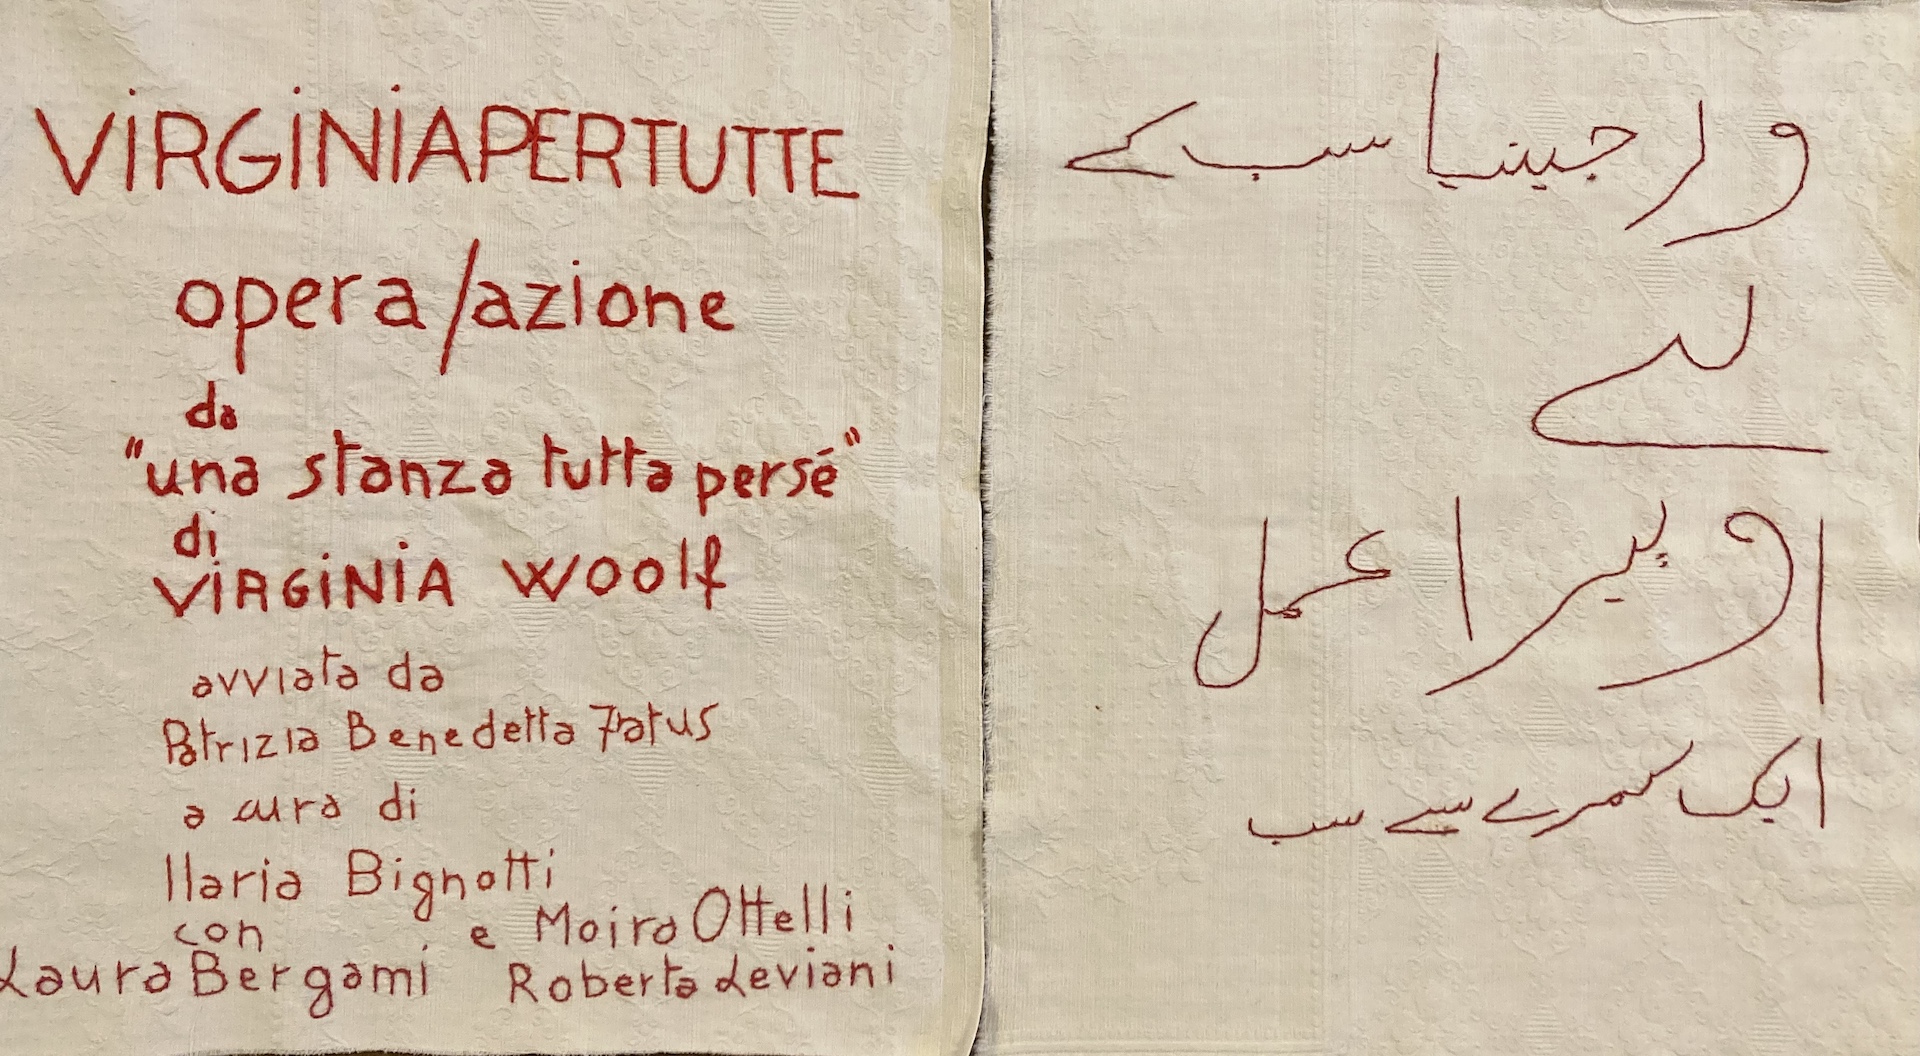 VIRGINIAPERTUTTE
opera/azione
da
"una stanza tutta persé"
di
VIRGINIA Woolf
avviata da
Patrizia Benedetta Fatus
a cura di
Ilaria Bignotti
con
Laura Bergami e Moira Ottelli
Roberta Leviani
ورجینیا سب کے
لے
اوپیرا عمل
ایک کمرے سے سب